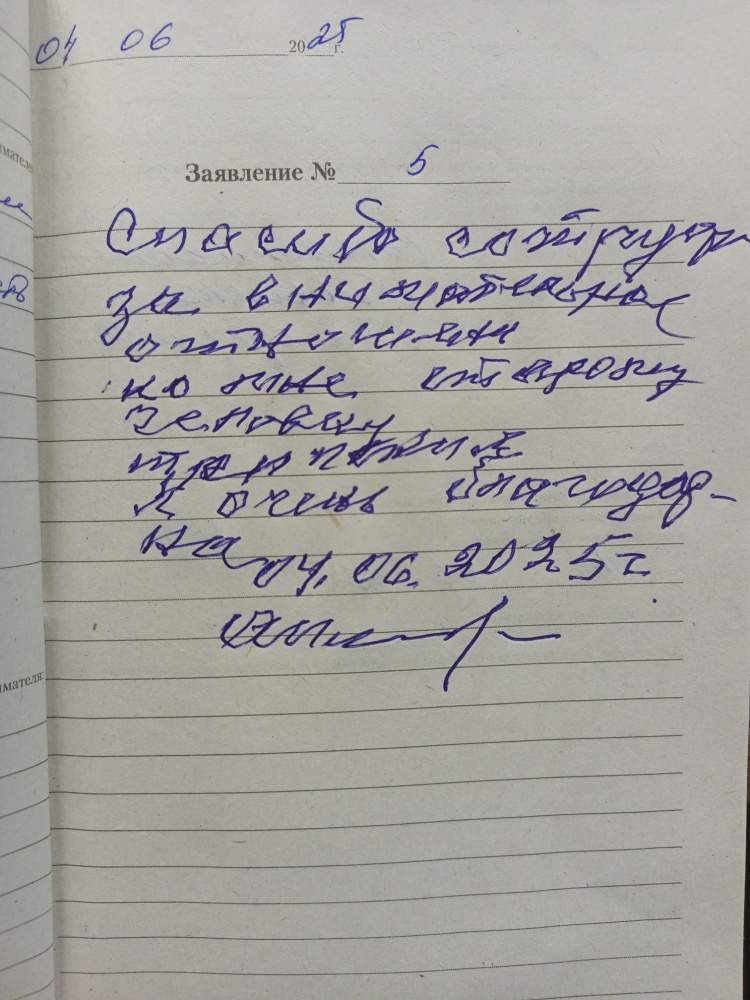 04 06 2025 г.
Заявление № 5
Спасибо сотруд
за внимательное
отношени
ко мне старому
человеку
Я очень благодар-
на
04.06.2025 г
имателя: